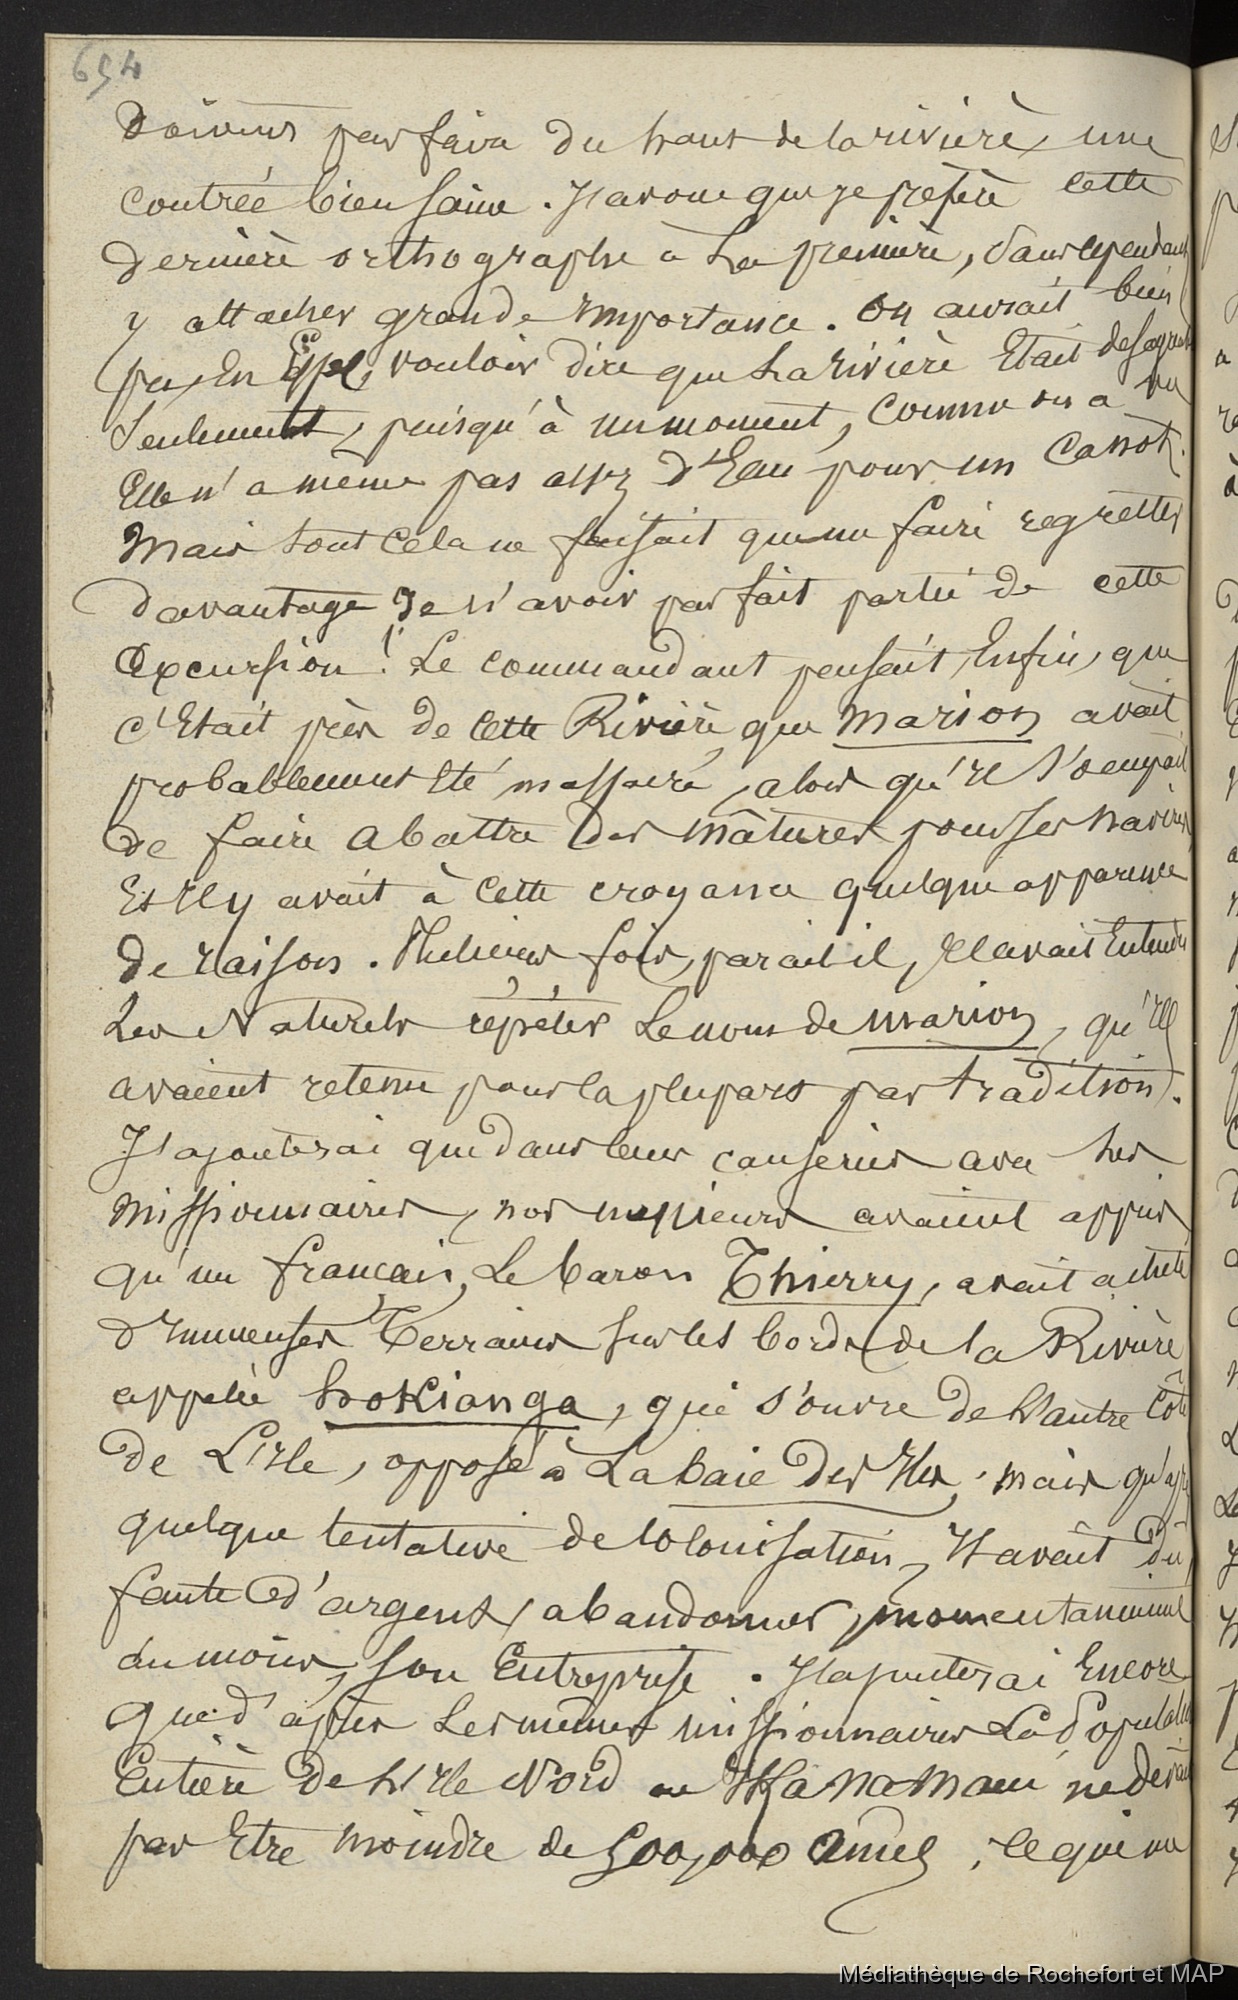 694
doivent pas faire du haut de la rivière, une
contrée bien saine. J'avoue que je préfère cette
dernière orthographe à la première, sans cependant
y attacher grande importance. On aurait bien
pu, en effet, vouloir dire que la rivière était
seulement, puisqu'à un moment, comme on a vu
Elle n'a même pas assez d'Eau pour un Canot.
Mais tout cela ne faisait que me faire regretter
davantage de n'avoir pas fait partie de cette
Excursion! Le commandant pensait, Enfin, que
c'Etait près de cette Rivière que Marion avait
probablement été massacré, alors qu'il s'occupait
de faire abattre des mâtures pour ses navires
Et Il y avait à cette croyance quelque apparence
de raison. Plusieurs fois, parait-il, Il avait Entendu
Les Naturels répéter Le nom de Marion, qu'Ils
avaient retenu pour la plupart par tradition.
J'ajouterai que dans leurs causeries avec les
missionnaires, nos messieurs avaient appris
qu'un français, Le baron Thierry, avait acheté
d'Immenses Terrains sur les bords de la Rivière
appelée hoKianga, qui s'ouvre de L'autre côté
de L'Ile, opposé à La baie des Iles, mais qu'après
quelque tentative de Colonisation, Il avait dû,
faute d'argent, abandonner, momentanément
du moins, son Entreprise. J'ajouterai Encore
que d'après Les mêmes missionnaires La Population
Entière de L'Ile Nord ne devait
pas Etre moindre de 500,000 âmes, ce qui me
Médiathèque de Rochefort et MAP